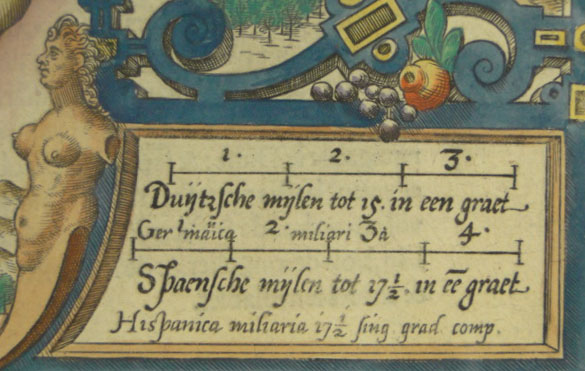 1. 2. 3.
Duÿtsche mÿlen tot 15. in een graet
Germaica miliaria
1 2. 3 4.
Spaensche mÿlen tot 17½. in eē graet
Hispanica miliaria 17½ sing grad comp.